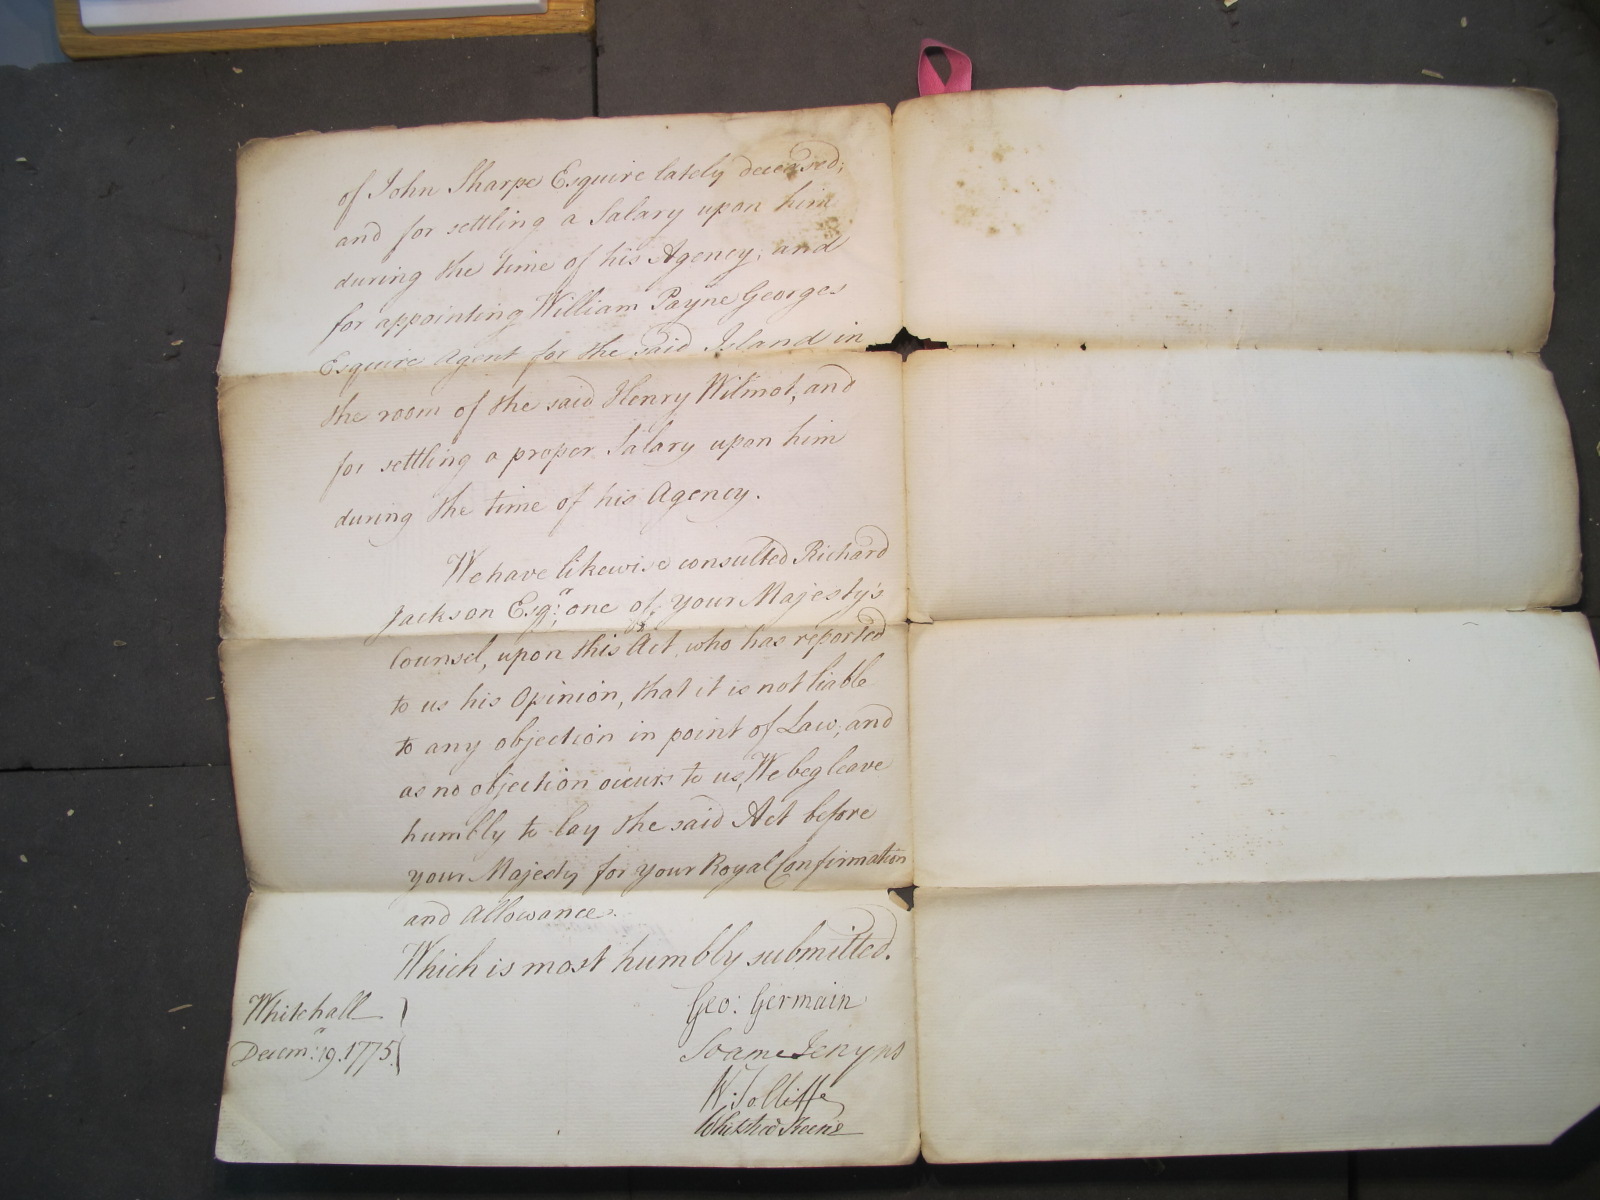 of John Sharpe Esquire lately deceased;
and for settling a Salary upon him
during the time of his Agency; and
for appointing William Payne Georges
Esquire Agent for the said Island in
the room of the said Henry Wilmot, and
for settling a proper Salary upon him
during the time of his Agency.
We have likewise consulted Richard
Jackson Esqr: one of your Majesty's
Counsel, upon this Act, who has reported
to us his Opinion, that it is not liable
to any objection in point of Law; and
as no objection occurs to us, We beg leave
humbly to lay the said Act before
your Majesty for your Royal Confirmation
and Allowance.
Which is most humbly submitted.
Geo: Germain
Soame Jenyns
W: Jolliffe
Whitshed Keene
Whitehall
Decemr: 19. 1775.